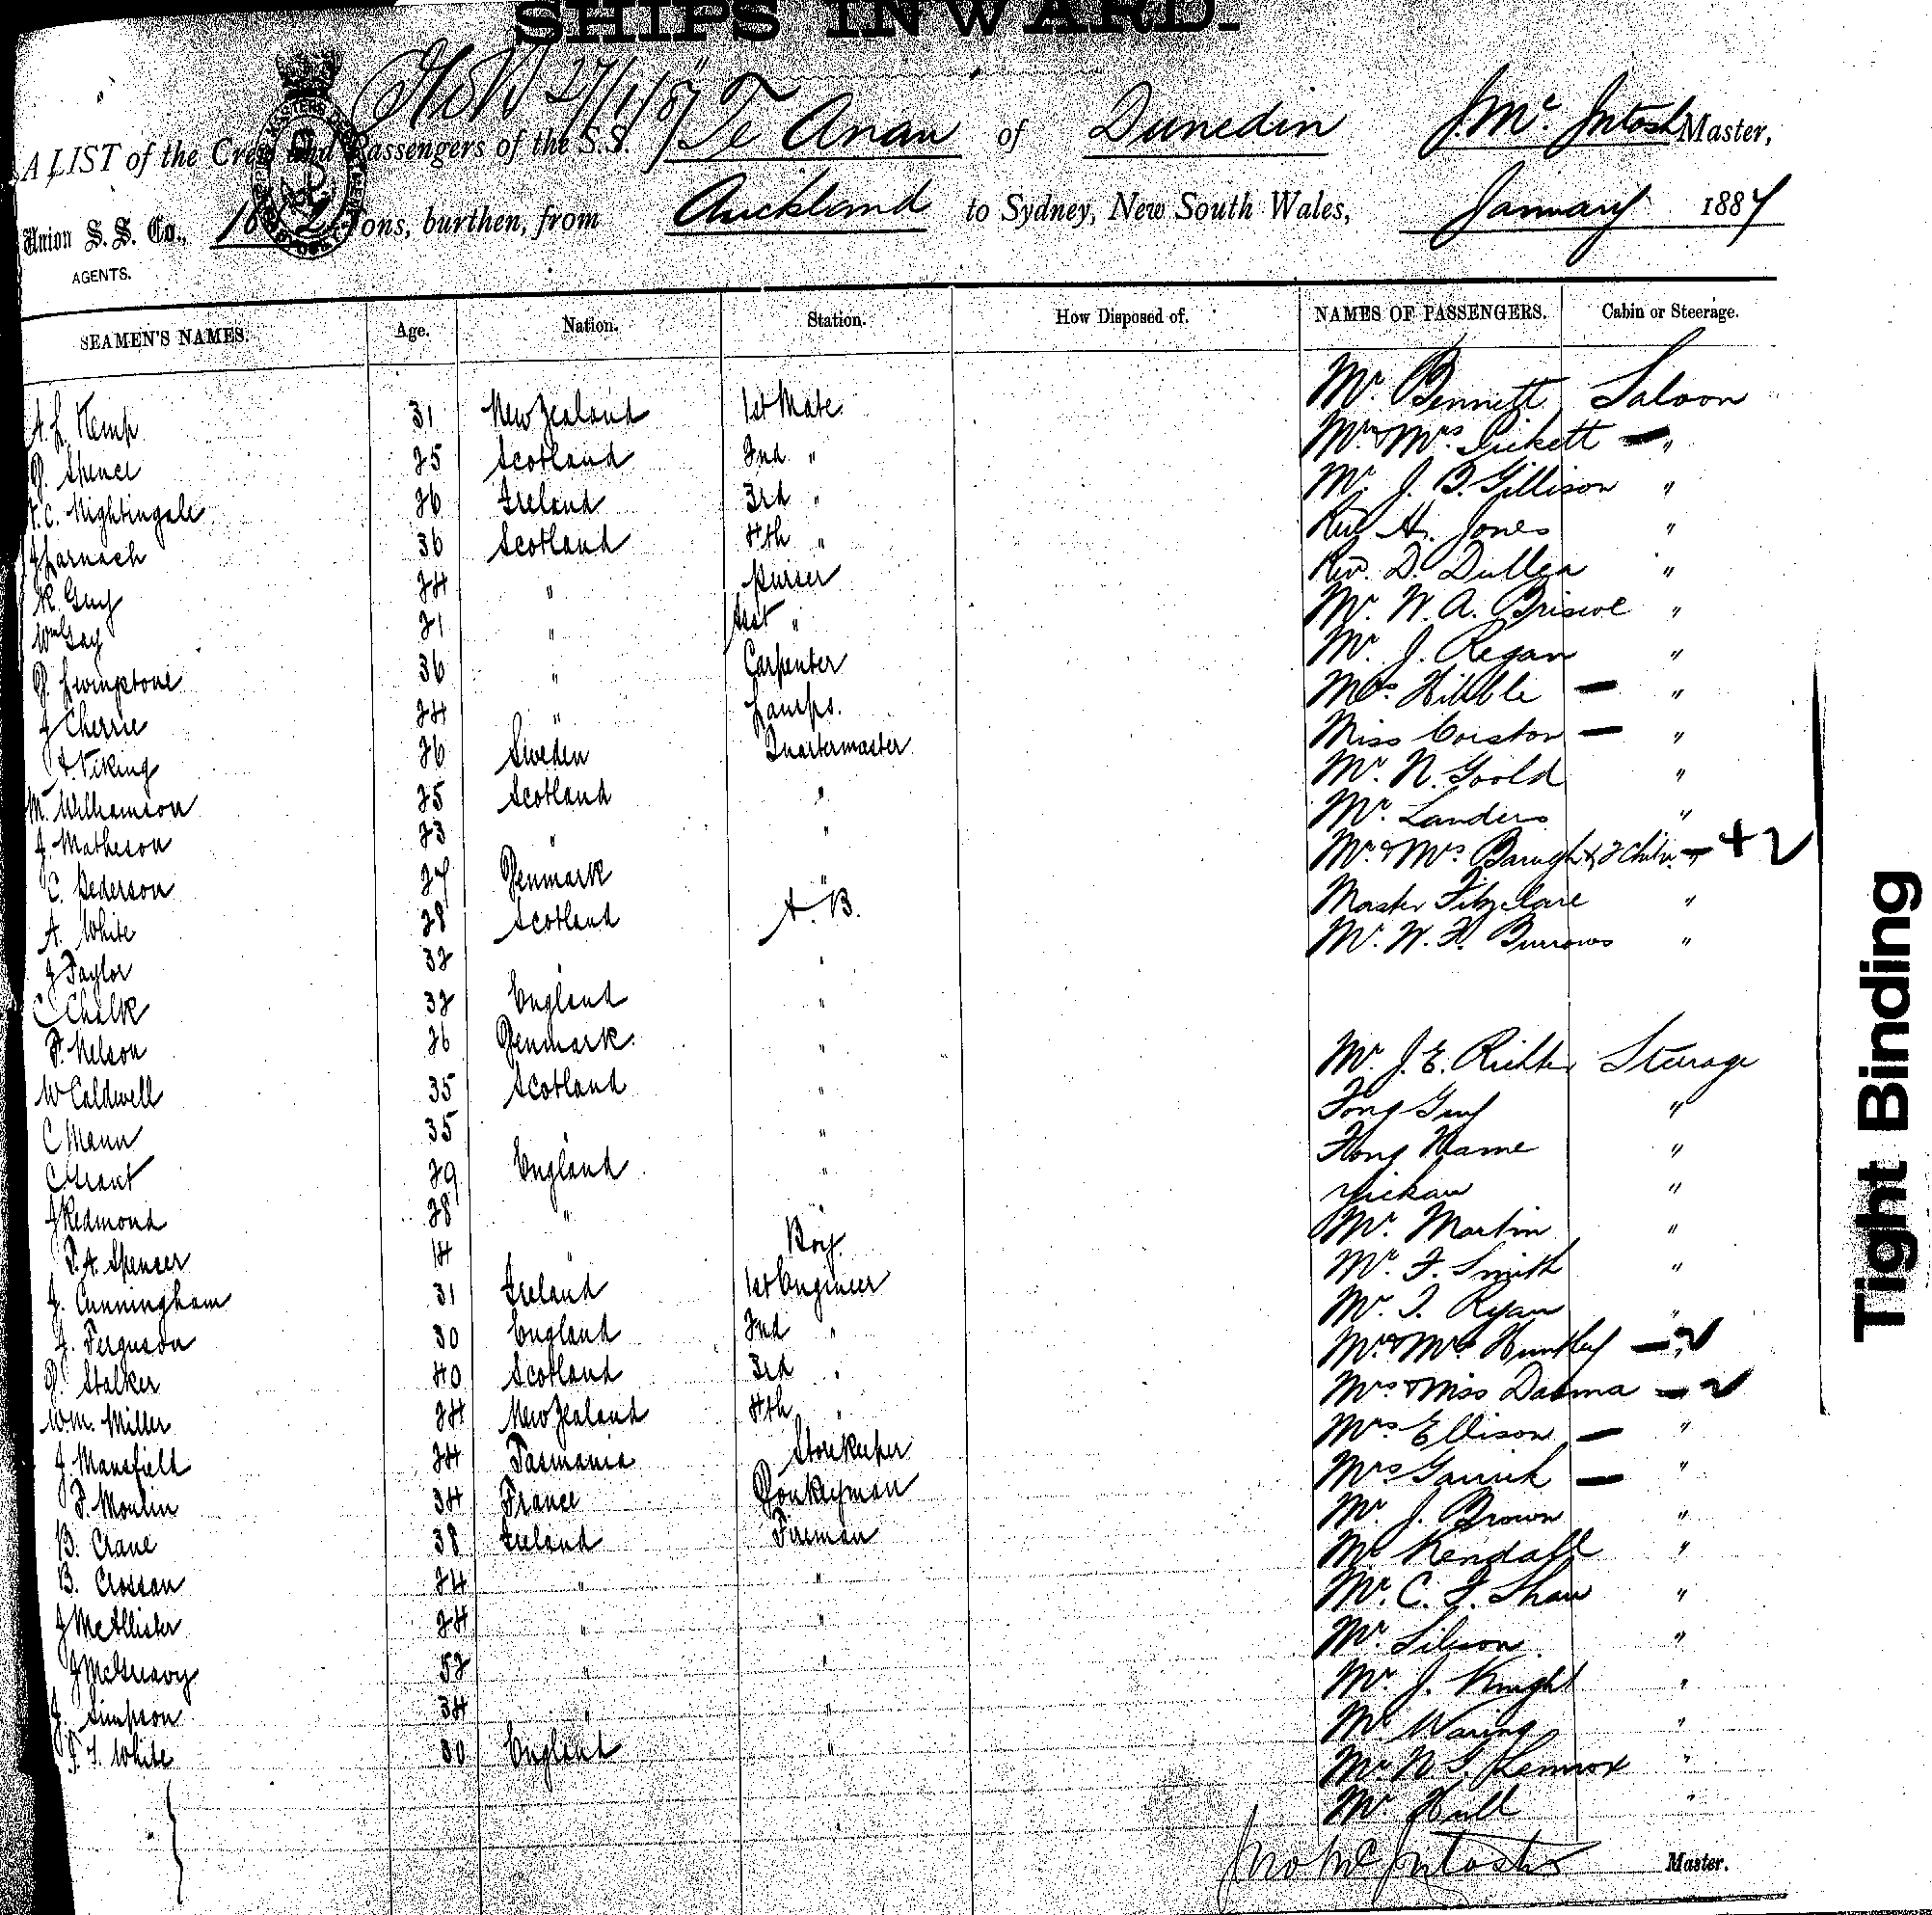 SHIPS INWARD.
27/1/87
A LIST of the Crew and Passengers of the S.S. Te Anau of Dunedin J. Mc. Intosh Master,
Union S. S. Co., Tons, burthen, from Auckland to Sydney, New South Wales, January 1887
AGENTS.
SEAMEN'S NAMES. Age. Nation. Station. How Disposed of. NAMES OF PASSENGERS. Cabin or Steerage.
Mr. Bennett Saloon
A. L. Kemp 31 New Zealand 1st Mate
Mr. & Mrs. Pickett — "
Spence 25 Scotland 2nd "
Mr. J. B. Gillison "
C. Nightingale 26 Ireland 3rd "
Rev. H. Jones "
J Larnach 36 Scotland 4th "
Rev. D. Dullea "
R. Guy 24 " Purser
Mr. W. A. Briscoe "
Wm Gay 21 " Asst "
Mr. J. Regan "
Livingstone 36 " Carpenter
Mrs. Hibble — "
J Cherrie 24 " Lamps.
Miss — "
A. Viking 26 Sweden Quartermaster
Mr. N. Goold "
M. Williamson 25 Scotland "
Mr. Landers "
J. Matheson 23 " "
Mr. & Mrs. & 2 — + 2
C. Pederson 27 Denmark "
Master Fitzclare "
A. White 28 Scotland A. B.
Mr. W. F. Burrows "
J Taylor 32 "
C Chalk 32 England "
F. Nelson 26 Denmark "
Mr. J. E. Richter Steerage
W Caldwell 35 Scotland "
Fong Guy "
C Mann 35 " "
Fong Hame "
C Grant 29 England "
Yickaw "
J Redmond 28 " "
Mr. Martin "
A. Spencer 14 " Boy
Mr. F. Smith "
J. Cunningham 31 Ireland 1st Engineer
Mr. T. Ryan "
J. Ferguson 30 England 2nd "
Mr. & Mrs Huntley — 2
Stalker 40 Scotland 3rd "
Mrs & Miss — 2
W. M. Miller 24 New Zealand 4th "
Mrs Ellison — "
J Mansfield 24 Tasmania Storekeeper
Mrs — "
F. Moulin 34 France Donkeyman
Mr. J. Brown "
B. Crane 38 Ireland Fireman
Mr Kendall "
B. Crossan 24 " "
Mr. C. F. Shaw "
J McAllister 24 " "
Mr. "
J McGreavy 52 " "
Mr. J. Knight "
J. Simpson 34 " "
Mr Waring "
White 30 England "
Mr. N. G. Lennox "
Mr Hull "
Jno Mc Intosh Master.
Tight Binding